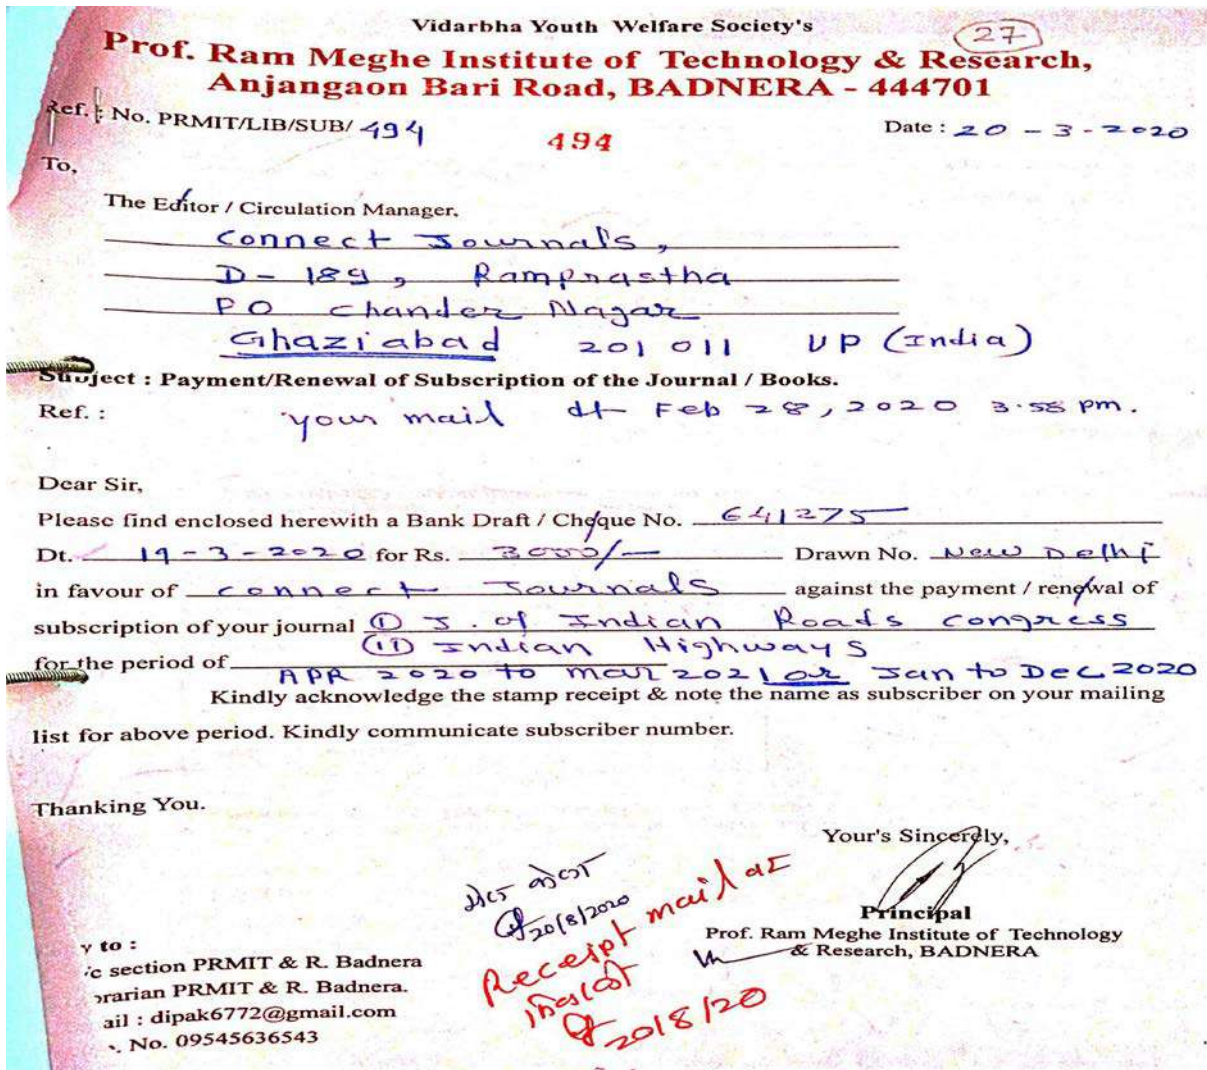 Vidarbha Youth Welfare Society's
27
Prof. Ram Meghe Institute of Technology & Research,
Anjangaon Bari Road, BADNERA - 444701
Ref. : No. PRMIT/LIB/SUB/ 494
494
Date : 20 - 3 - 2020
To,
The Editor / Circulation Manager,
Connect Journals,
D - 189, Ramprastha
PO Chander Nagar
Ghaziabad 201 011 UP (India)
Subject : Payment/Renewal of Subscription of the Journal / Books.
Ref. : your mail dt Feb 28, 2020 3.58 pm.
Dear Sir,
Please find enclosed herewith a Bank Draft / Cheque No. 641275
Dt. 19 - 3 - 2020 for Rs. 3000/- Drawn No. New Delhi
in favour of connect Journals against the payment / renewal of
subscription of your journal ① J. of Indian Roads congress
(II) Indian Highways
for the period of APR 2020 to Mar 2021 or Jan to Dec 2020
Kindly acknowledge the stamp receipt & note the name as subscriber on your mailing
list for above period. Kindly communicate subscriber number.
Thanking You.
Your's Sincerely,
Principal
Prof. Ram Meghe Institute of Technology
& Research, BADNERA
मेल केला
20/8/2020
Receipt mail वर
20/8/20
y to :
c section PRMIT & R. Badnera
rarian PRMIT & R. Badnera.
ail : dipak6772@gmail.com
. No. 09545636543